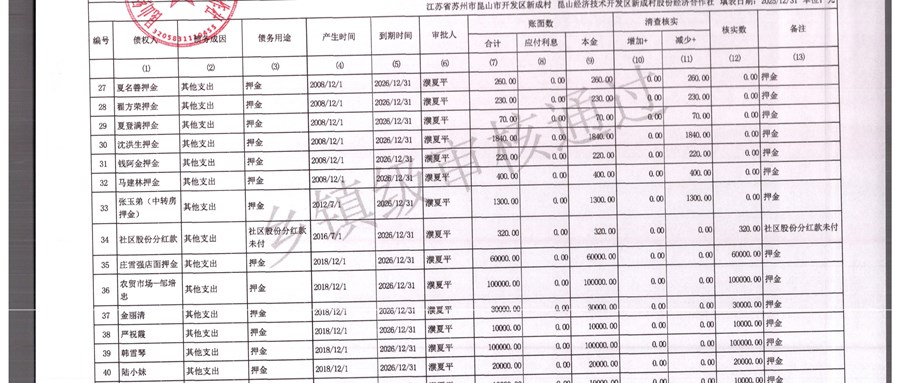 江苏省苏州市昆山市开发区新成村 昆山经济技术开发区新成村股份经济合作社 填表日期: 2025/12/31 单位: 元
3205831155655
编号 债权人 债务成因 债务用途 产生时间 到期时间 审批人 账面数 清查核实 核实数 备注
合计 应付利息 本金 增加+ 减少-
(1) (2) (3) (4) (5) (6) (7) (8) (9) (10) (11) (12) (13)
27 夏名善押金 其他支出 押金 2008/12/1 2026/12/31 濮夏平 260.00 0.00 260.00 0.00 260.00 0.00 押金
28 翟方荣押金 其他支出 押金 2008/12/1 2026/12/31 濮夏平 230.00 0.00 230.00 0.00 230.00 0.00 押金
29 夏登满押金 其他支出 押金 2008/12/1 2026/12/31 濮夏平 70.00 0.00 70.00 0.00 70.00 0.00 押金
30 沈洪生押金 其他支出 押金 2008/12/1 2026/12/31 濮夏平 1840.00 0.00 1840.00 0.00 1840.00 0.00 押金
31 钱阿金押金 其他支出 押金 2008/12/1 2026/12/31 濮夏平 220.00 0.00 220.00 0.00 220.00 0.00 押金
32 马建林押金 其他支出 押金 2008/12/1 2026/12/31 濮夏平 400.00 0.00 400.00 0.00 400.00 0.00 押金
33 张玉弟（中转房押金） 其他支出 押金 2012/7/1 2026/12/31 濮夏平 1300.00 0.00 1300.00 0.00 1300.00 0.00 押金
34 社区股份分红款 其他支出 社区股份分红款未付 2016/7/1 2026/12/31 濮夏平 320.00 0.00 320.00 0.00 0.00 320.00 社区股份分红款未付
35 庄雪强店面押金 其他支出 押金 2018/12/1 2026/12/31 濮夏平 60000.00 0.00 60000.00 0.00 0.00 60000.00 押金
36 农贸市场一邹培忠 其他支出 押金 2018/12/1 2026/12/31 濮夏平 100000.00 0.00 100000.00 0.00 0.00 100000.00 押金
37 金丽清 其他支出 押金 2018/12/1 2026/12/31 濮夏平 30000.00 0.00 30000.00 0.00 0.00 30000.00 押金
38 严祝霞 其他支出 押金 2018/12/1 2026/12/31 濮夏平 10000.00 0.00 10000.00 0.00 0.00 10000.00 押金
39 韩雪琴 其他支出 押金 2018/12/1 2026/12/31 濮夏平 100000.00 0.00 100000.00 0.00 0.00 100000.00 押金
40 陆小妹 其他支出 押金 2018/12/1 2026/12/31 濮夏平 20000.00 0.00 20000.00 0.00 0.00 20000.00 押金
乡镇级审核通过